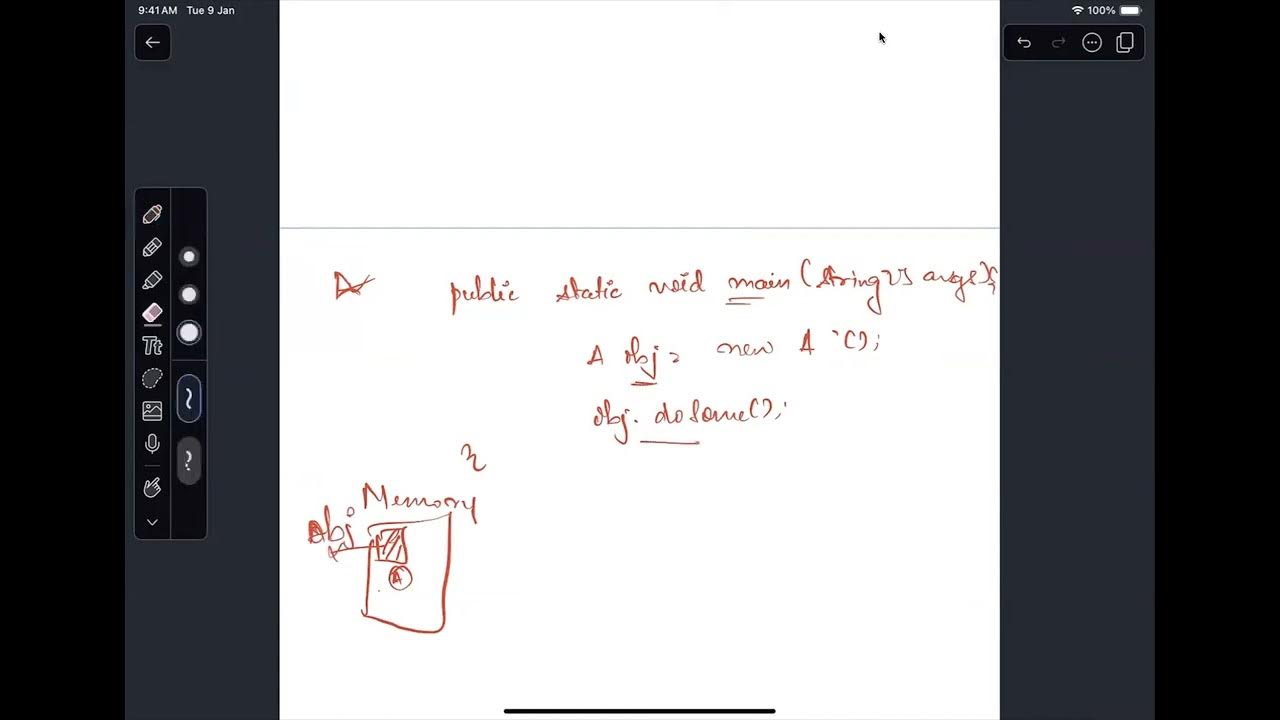 9:41 AM Tue 9 Jan
100%
Tt
public static void main (String[] args) {
A obj = new A ();
obj. doSome();
}
Memory
obj
A